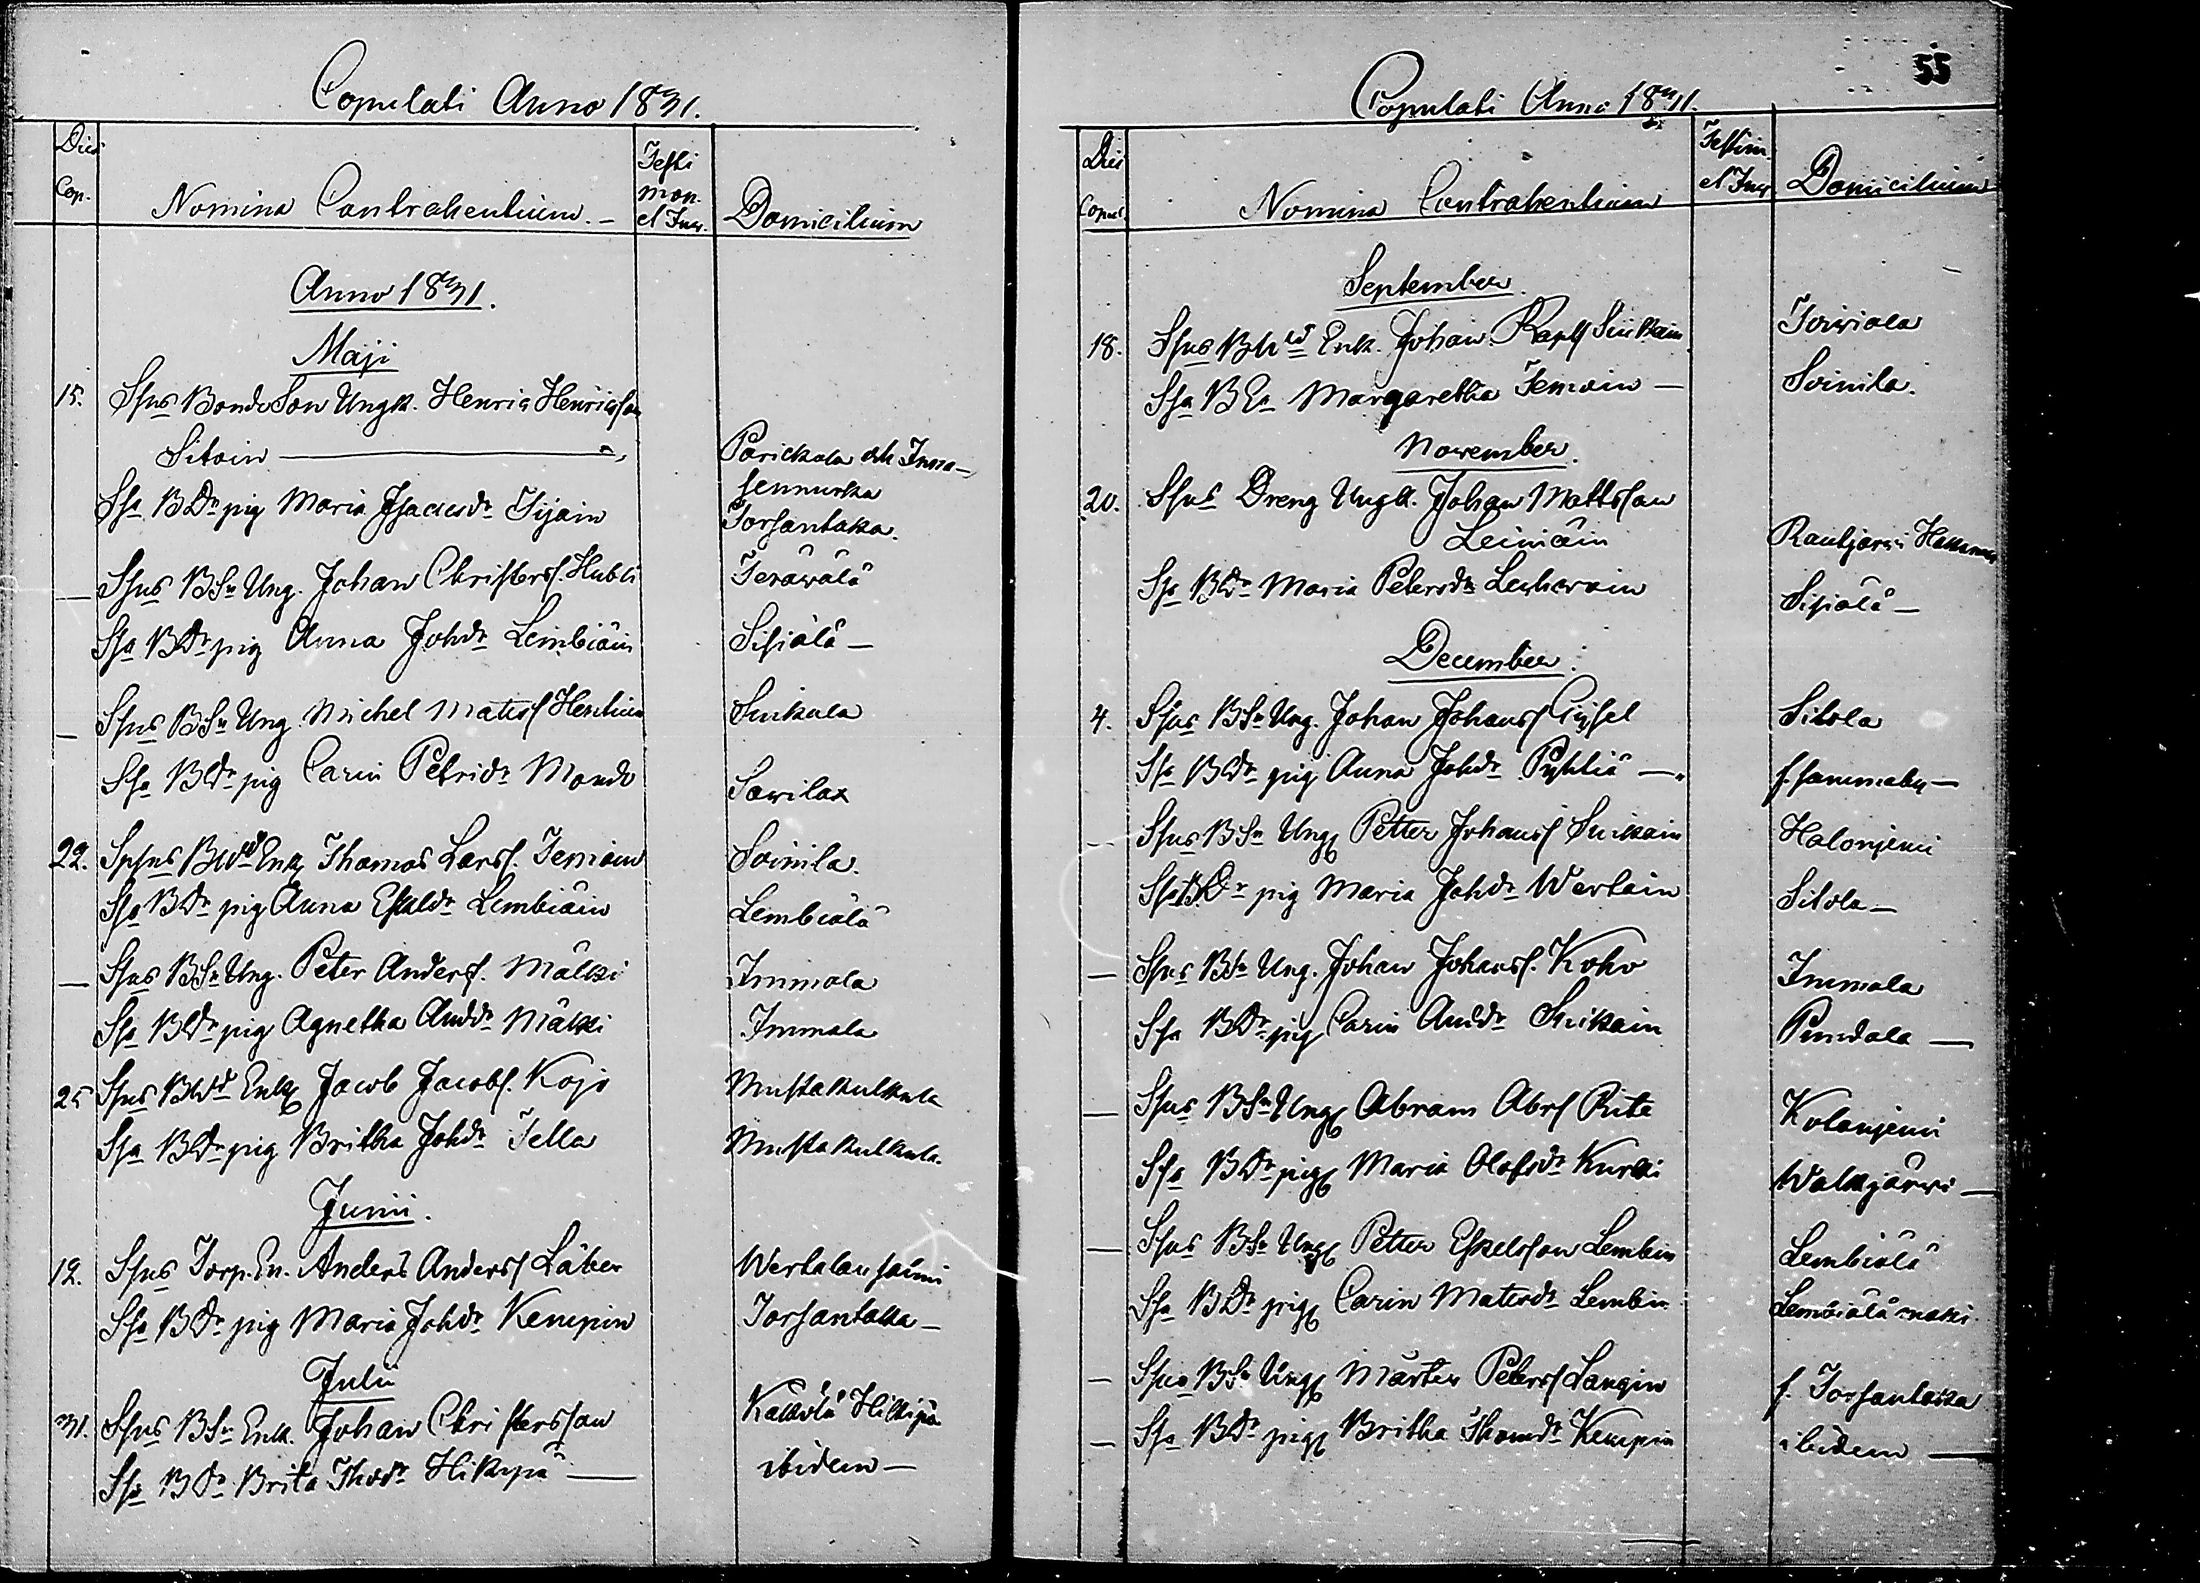 Copulati Anno 1831.
Dies Cop.
Nomina Contrahentium. -
Testi mon. et Jur.
Domicilium
Anno 1831.
Maji
15. Spus Bonde Son Ungk. Henric Henricsson
Sitoin — Parickala och Inna-
sennurka
Spa BDr pig Maria Isacsdr Tijain Torsantaka.
— Spus BSn Ung. Johan Christerss. Hubli Terävälä
Spa BDr pig Anna Johdr Lembiäin Sipiälä —
— Spus BSn Ung Michel Matsss Hentuin Suikala
Spa BDr pig Carin Petridr Mondo Sawilax
22. Spsus BWd Enk Thomas Larss. Temoin Soinila.
Spa BDr pig Anna Eskldr Lembiäin Lembiälä
— Spus BSn Ung. Peter Anderss. Mälki Immola
Spa BDr pig Agnetha Anddr Mälki Immala
25 Spus BWd Enk Jacob Jacobs. Kojo Mustakulkula
Spa BDr pig Britha Johdr Tella Mustakulkula.
Junii.
12. Spus Torp. En. Anders Anderss Läber Wertalansaimi
Spa BDr pig Maria Johdr Kempin Torsantaka —
Julii
31. Spus BSn Enk. Johan Christersson Kälkölä Hilkipä
Spa BDr Brita Thodr Hikipä — ibidem —
55
Copulati Anno 1831.
Dies Copul
Nomina Contrahentium
Testim. et Jur
Domicilium
September.
18. Spus BWd Enk. Johan Suikain
Spa BEa Margaretha Temoin — Soinila.
November.
20. Spus Dreng Ungk. Johan Mattsson
Leiniäin Rautjärvi
Spa BDr Maria Petersdr Sipiälä —
December.
4. Spus BSn Ung. Johan Johanss Sitola
Spa BDr pig Anna Johdr Pyhliä — f. sammaby —
— Spus BSn Ung Petter Johanss Suikain Halonjemi
Spa BDr pig Maria Johdr Wertain Sitola —
— Spus BSn Ung. Johan Johanss. Koho Immala
Spa BDr pig Carin Anddr Suikain Pundala —
— Spus BSn Ung Abram Abrs Rite Kolonjemi
Spa BDr pig Maria Olofsdr Kurki Walkjärwi —
— Spus BSn Ung Petter Eskelsson Lembin Lembiälä
Spa BDr pig Carin Matsdr Lembin Lembiälä maki
— Spus BSn Ung Mårten Peterss Langin f. Torsantaka
— Spa BDr pig Britha Thomdr Kempin ibidem —